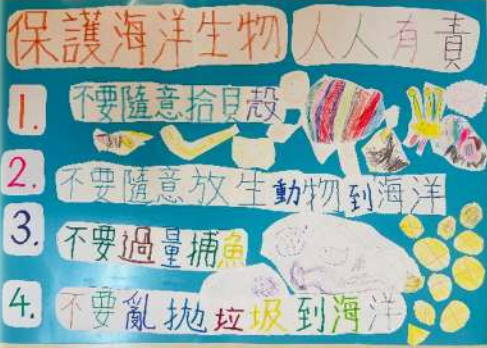 保護海洋生物 人人有責
1. 不要隨意拾貝殼
2. 不要隨意放生動物到海洋
3. 不要過量捕魚
4. 不要亂拋垃圾到海洋